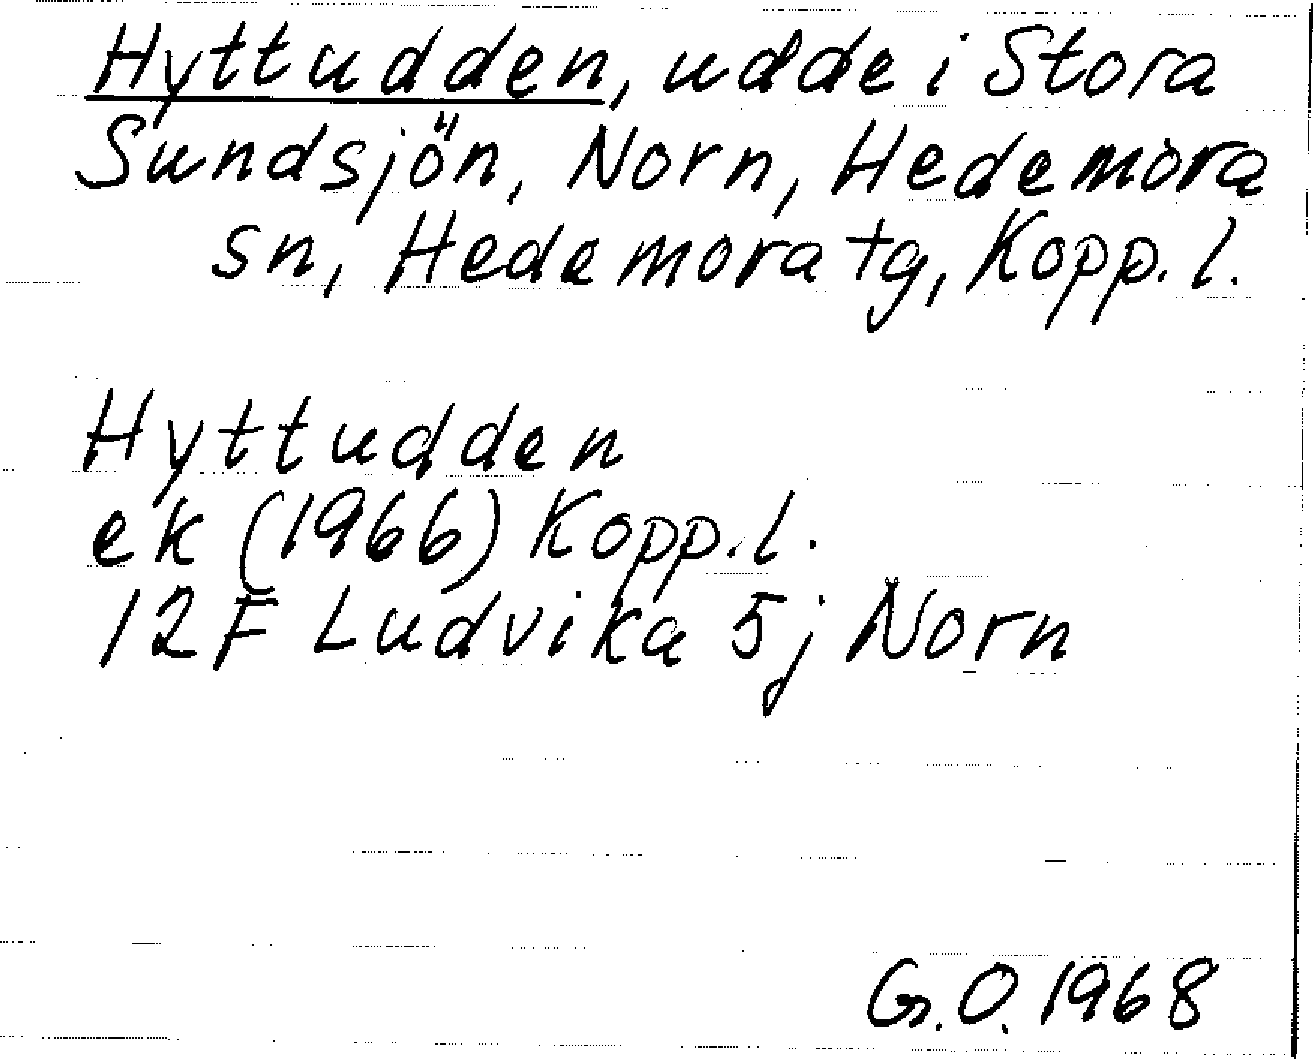 Hyttudden, udde i Stora
Sundsjön, Norn, Hedemora
sn, Hedemora tg, Kopp. l.
Hyttudden
ek (1966) Kopp. l.
12F Ludvika 5j Norn
G.O. 1968